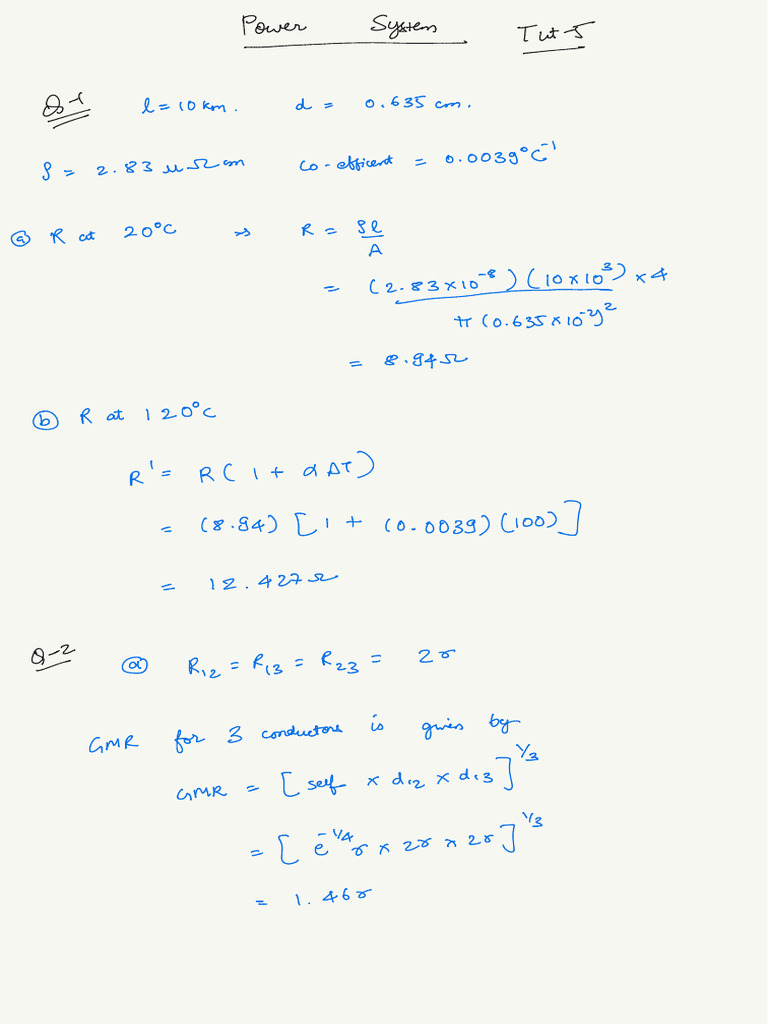 Power System Tut-5
Q-1 l = 10 km. d = 0.635 cm.
ρ = 2.83 μΩcm co-efficent = 0.0039°C⁻¹
ⓐ R at 20°C ⇒ R = ρl/A
= (2.83×10⁻⁸)(10×10³)×4 / π(0.635×10⁻²)²
= 8.94Ω
ⓑ R at 120°C
R' = R(1 + αΔT)
= (8.94)[1 + (0.0039)(100)]
= 12.427Ω
Q-2 ⓐ R₁₂ = R₁₃ = R₂₃ = 2r
GMR for 3 conductors is given by
GMR = [self × d₁₂ × d₁₃]^1/3
= [e^-1/4 r × 2r × 2r]^1/3
= 1.46r